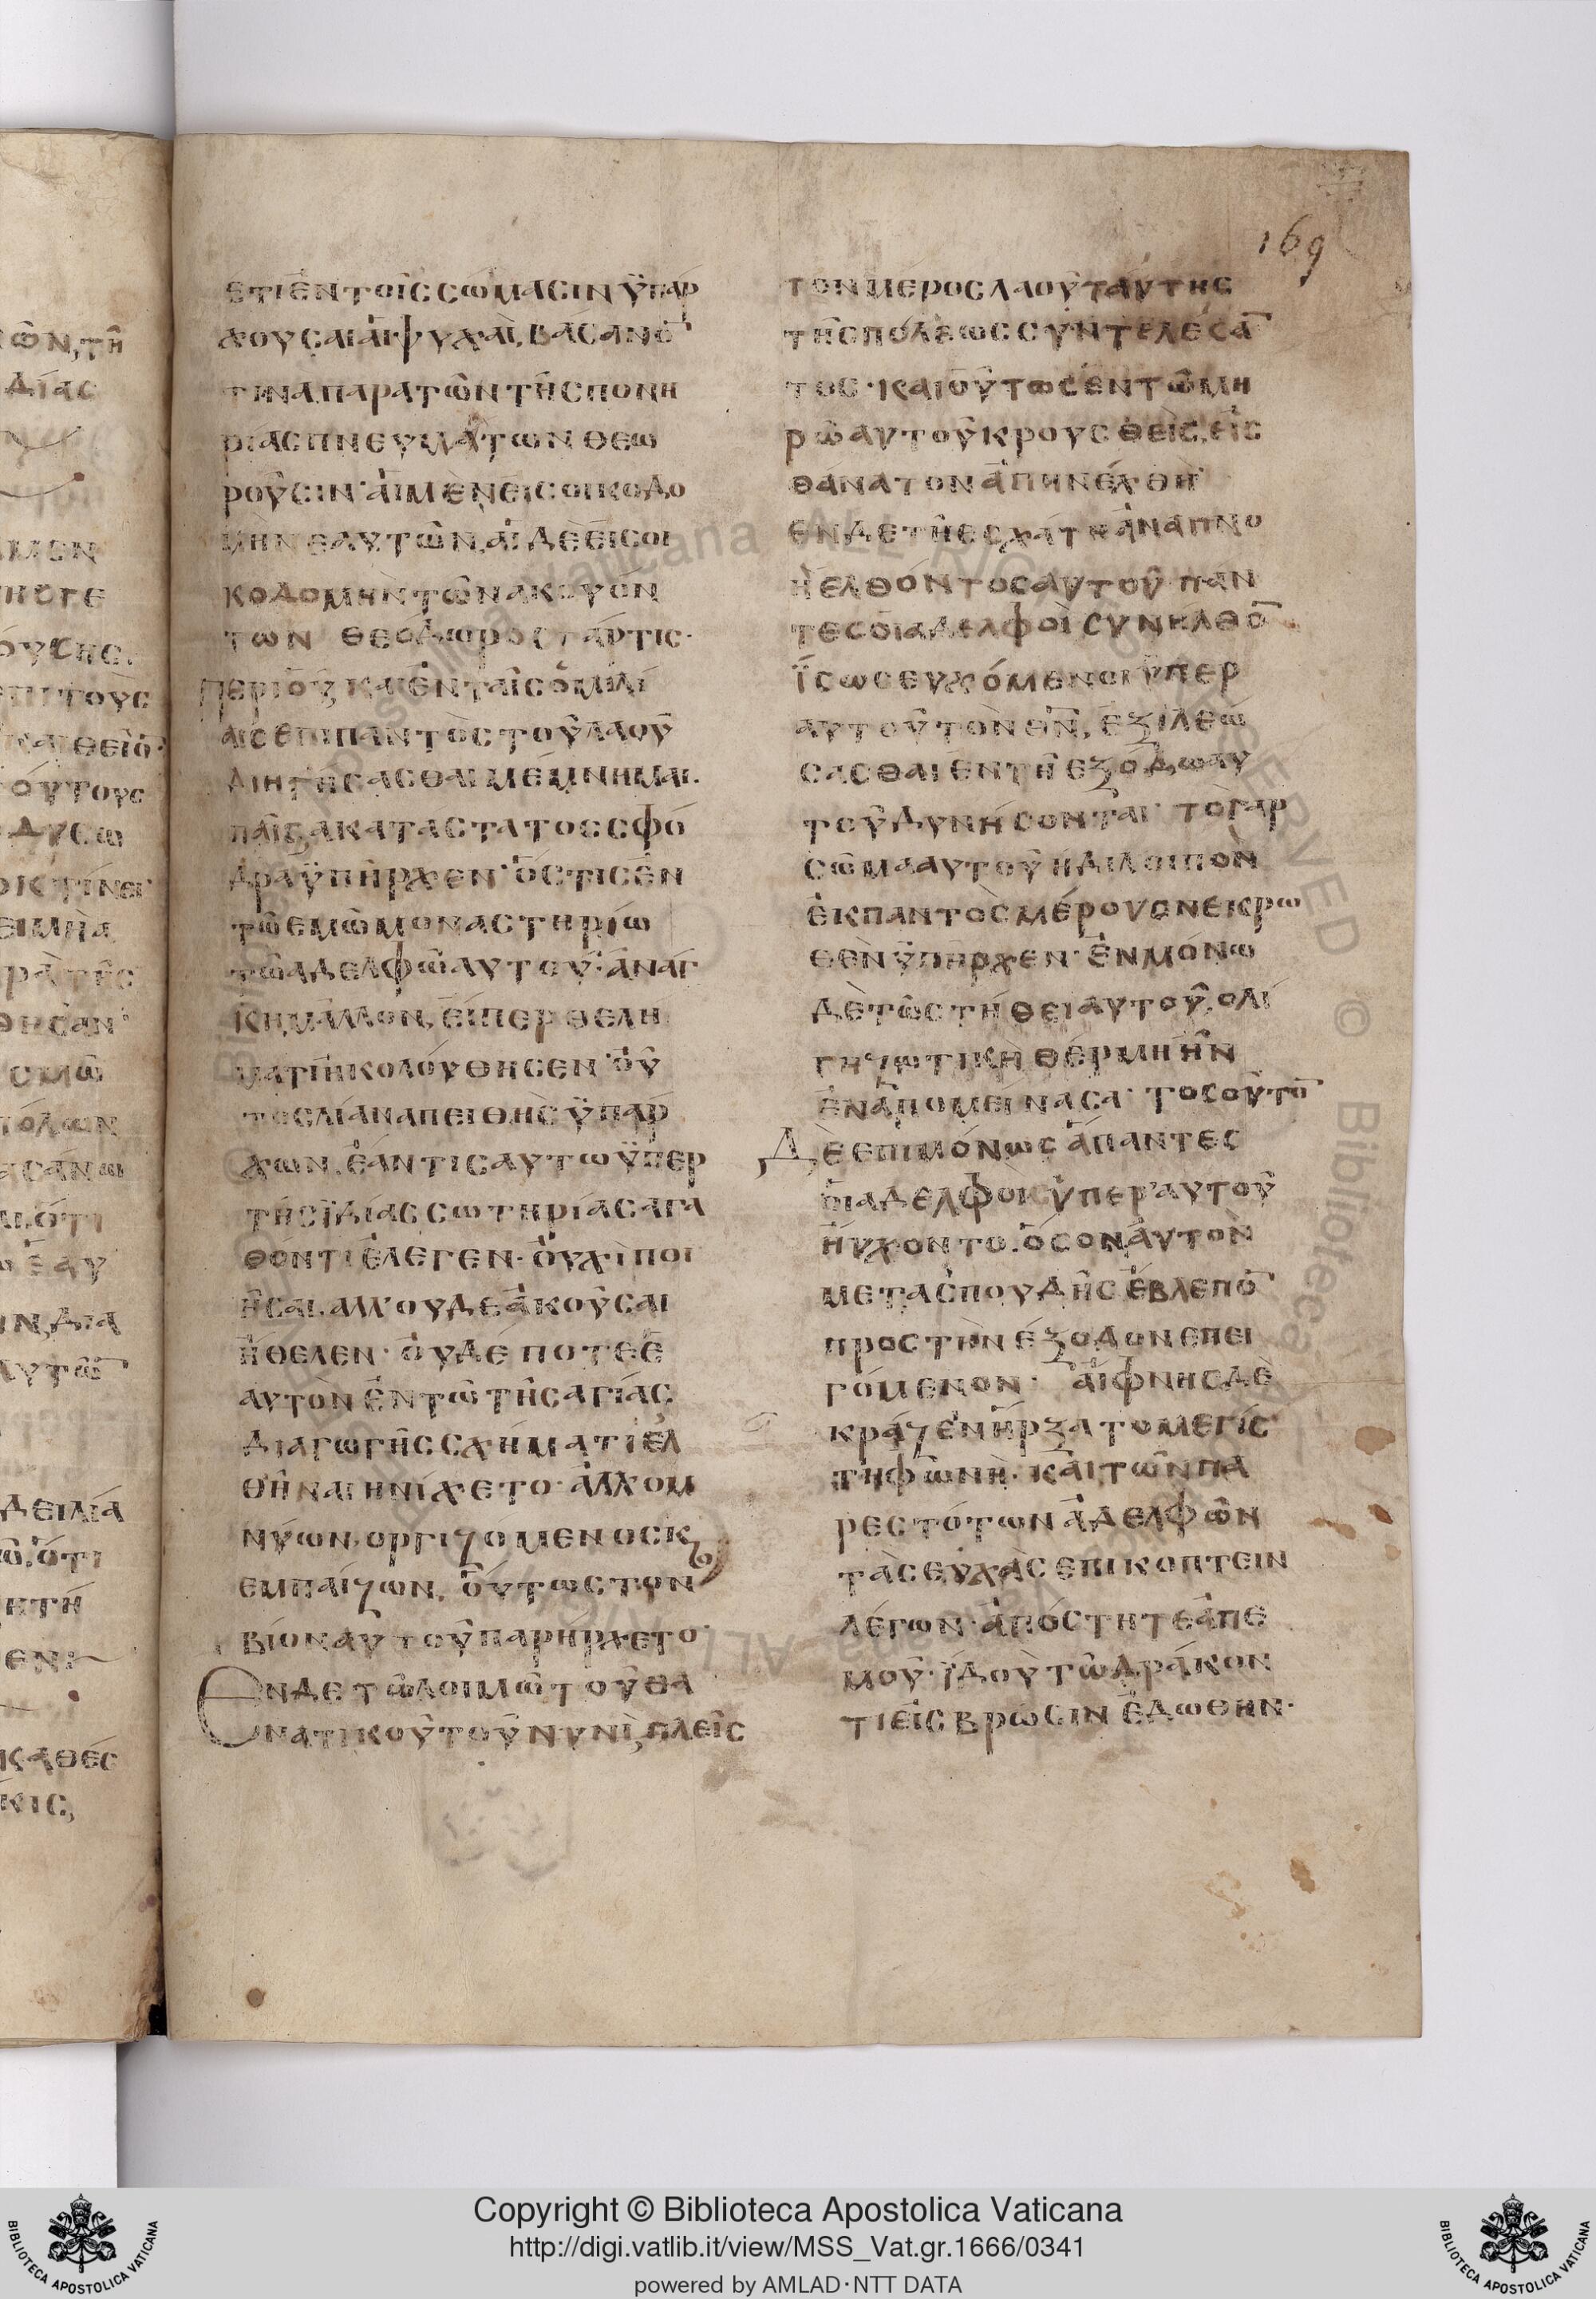 169
ἔτι ἐν τοῖς σώμασιν ϋπάρ
χουσαι αἱ ψυχαὶ, βάσανό̄
τινα παρὰ τῶν τῆς πονη
ρίας πνευμάτων θεω
ροῦσιν· αἱ μὲν εἰς οἰκοδο
μὴν ἑαυτῶν, αἱ δὲ εἰς οἰ
κοδομὴν τῶν ἀκουόν
των θεόδωρος γάρ τις·
Περὶ οὗ καὶ ἐν ταῖς ὁμιλί
αις ἐπὶ παντὸς τοῦ λαοῦ
διηγήσασθαι μέμνημαι.
παῖς ἀκατάστατος σφό
δρα ϋπῆρχεν· ὅστις ἐν
τῶ ἐμῶ μοναστηρίω
τῶ ἀδελφῶ αὐτοῦ· ἀνάγ
κη μᾶλλον, εἴπερ θελή
ματι ἠκολούθησεν· οὗ
τος λίαν ἀπειθὴς ϋπάρ
χων, ἐάν τις αὐτῶ ϋπὲρ
τῆς ϊδίας σωτηρίας ἀγα
θόν τι ἔλεγεν· οὐχὶ ποι
ῆσαι, ἀλλ' οὐδὲ ἀκοῦσαι
ἤθελεν· οὐδέποτε ἑ
αυτὸν ἐν τῶ τῆς ἁγίας
διαγωγῆς σχήματι ἐλ
θῆναι ἠνίχετο· ἀλλ' ὀμ
νύων, ὀργιζόμενος κ
ἐμπαίζων, οὕτως τὸν
βίον αὐτοῦ παρήρχετο·
Ἐν δὲ τῶ λοιμῶ τοῦ θα
νατικοῦ τοῦ νυνὶ, πλεῖσ
τον μέρος λαοῦ ταύτης
τῆς πόλεως συντελέσᾱ
τος· καὶ οὕτως ἐν τῶ μη
ρῶ αὐτοῦ κρουσθεὶς, εἰς
θάνατον ἀπηνέχθη·
ἐν δὲ τῆ ἐσχάτη ἀναπνο
ῆ ἐλθόντος αὐτοῦ πάν
τες οἱ ἀδελφοὶ συνῆλθō
ἴσως εὐχόμενοι ϋπὲρ
αὐτοῦ τὸν θν̄, ἐξιλεώ
σασθαι ἐν τῆ ἐξόδω αὐ
τοῦ δυνήσονται· τὸ γὰρ
σῶμα αὐτοῦ ἤδη λοιπὸν
ἐκ παντὸς μέρους νεκρω
θὲν ϋπῆρχεν· ἐν μόνω
δὲ τῶ στήθει αὐτοῦ, ὀλί
γη ζωτικὴ θέρμη ἦν
ἐναπομείνασα· τοσοῦτō
Δὲ ἐπιμόνως ἅπαντες
οἱ ἀδελφοὶ ὑπὲρ αὐτοῦ
ηὔχοντο. ὅσον αὐτὸν
μετὰ σπουδῆς ἔβλεπō
πρὸς τὴν ἔξοδον ἐπει
γόμενον· αἴφνης δὲ
κράζειν ἤρξατο μεγίσ
τη φωνὴ· καὶ τῶν πα
ρεστότων ἀδελφῶν
τὰς εὐχὰς ἐπικόπτειν
λέγων· ἀπόστητε ἀπ' ἐ
μοῦ· ϊδοὺ τῶ δράκον
τι εἰς βρῶσιν ἐδώθην·
Copyright © Biblioteca Apostolica Vaticana
http://digi.vatlib.it/view/MSS_Vat.gr.1666/0341
powered by AMLAD·NTT DATA
BIBLIOTECA APOSTOLICA VATICANA
BIBLIOTECA APOSTOLICA VATICANA